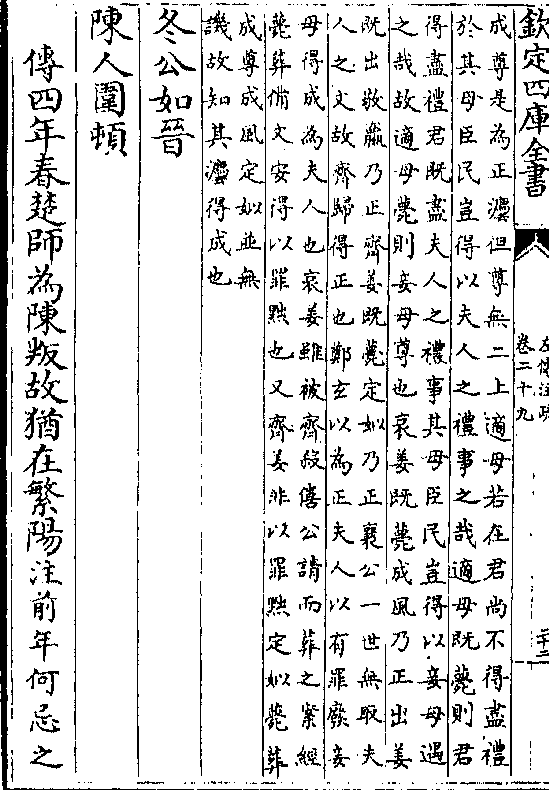 欽定四庫全書
左傳注疏
卷二十九
二十二
成尊是為正灋但尊無二上適母若在君尚不得盡禮
於其母臣民豈得以夫人之禮事之哉適母既薨則君
得盡禮君既盡夫人之禮事其母臣民豈得以妾母遇
之哉故適母薨則妾母尊也哀姜既薨成風乃正出姜
既出敬嬴乃正齊姜既薨定姒乃正襄公一世無取夫
人之文故齊歸得正也鄭玄以為正夫人以有罪廢妾
母得成為夫人也哀姜雖被齊殺僖公請而葬之案經
薨葬備文安得以罪黜也又齊姜非以罪黜定姒薨葬
成尊成風定姒並無
譏故知其灋得成也
冬公如晉
陳人圍頓
傳四年春楚師為陳叛故猶在繁陽注前年何忌之